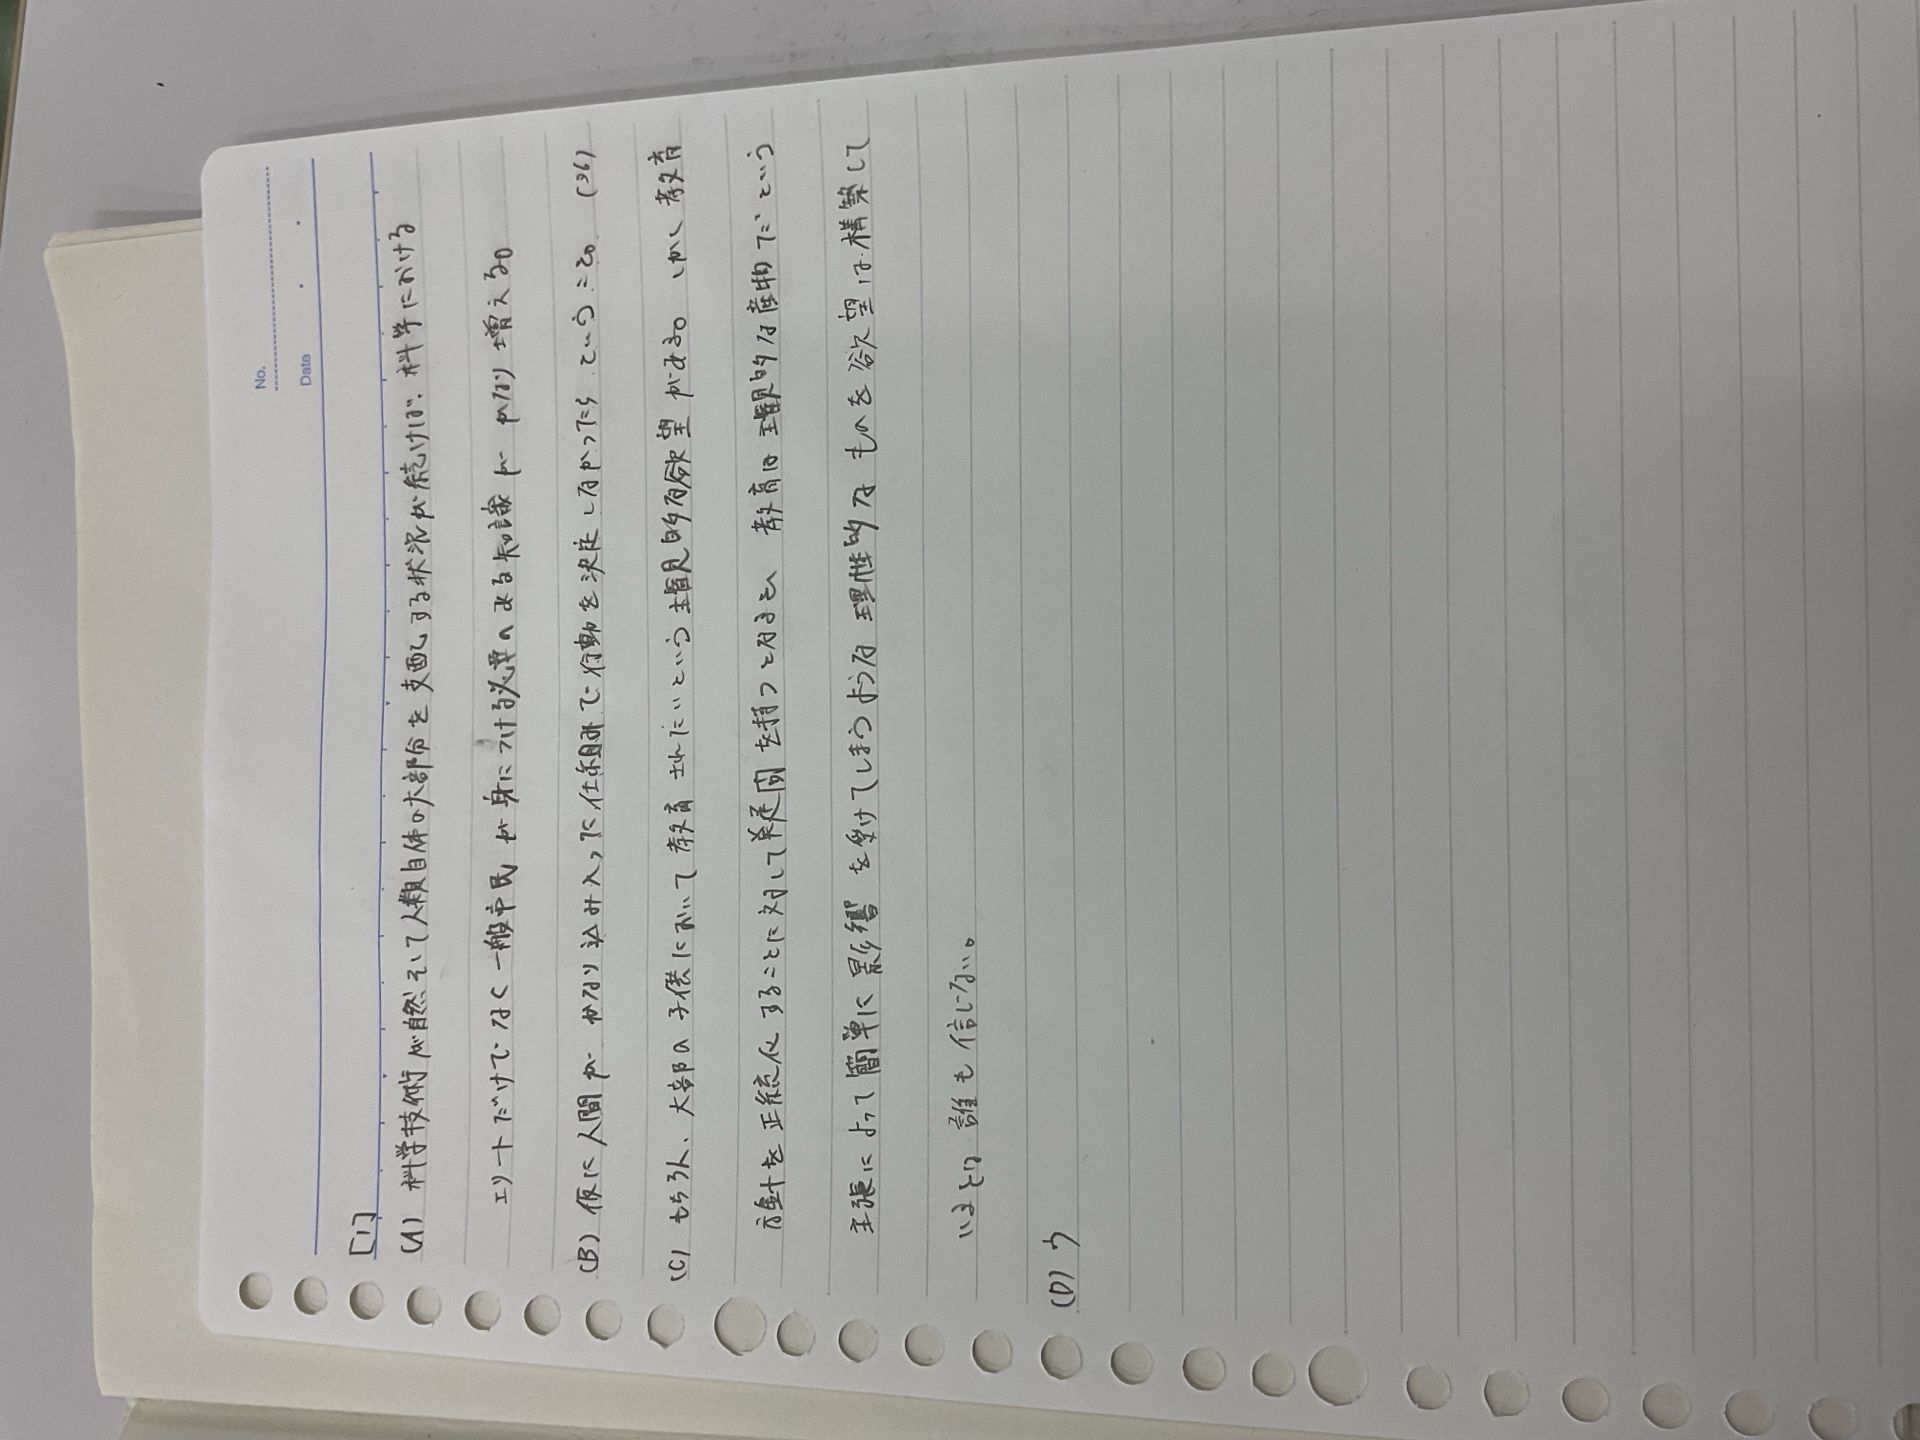 No.
Date
[1]
(A) 科学技術が自然そして人類自体の大部分を支配する状況が続けば、科学における
エリートだけでなく一般市民が身につける必要のある知識がかなり増える。
(B) 仮に人間がかなり込み入った仕組みで行動を決定しなかったら、ということ。 (36)
(C) もちろん、大部の子供において教育されたいという主観的な欲望がある。しかし教育
方針を正統化することに対して疑問を持つとなると、教育は主観的な産物だという
主張によって簡単に影響を受けてしまうような理性的なものを欲望は構築して
いるとは誰も信じない。
(D) ウ